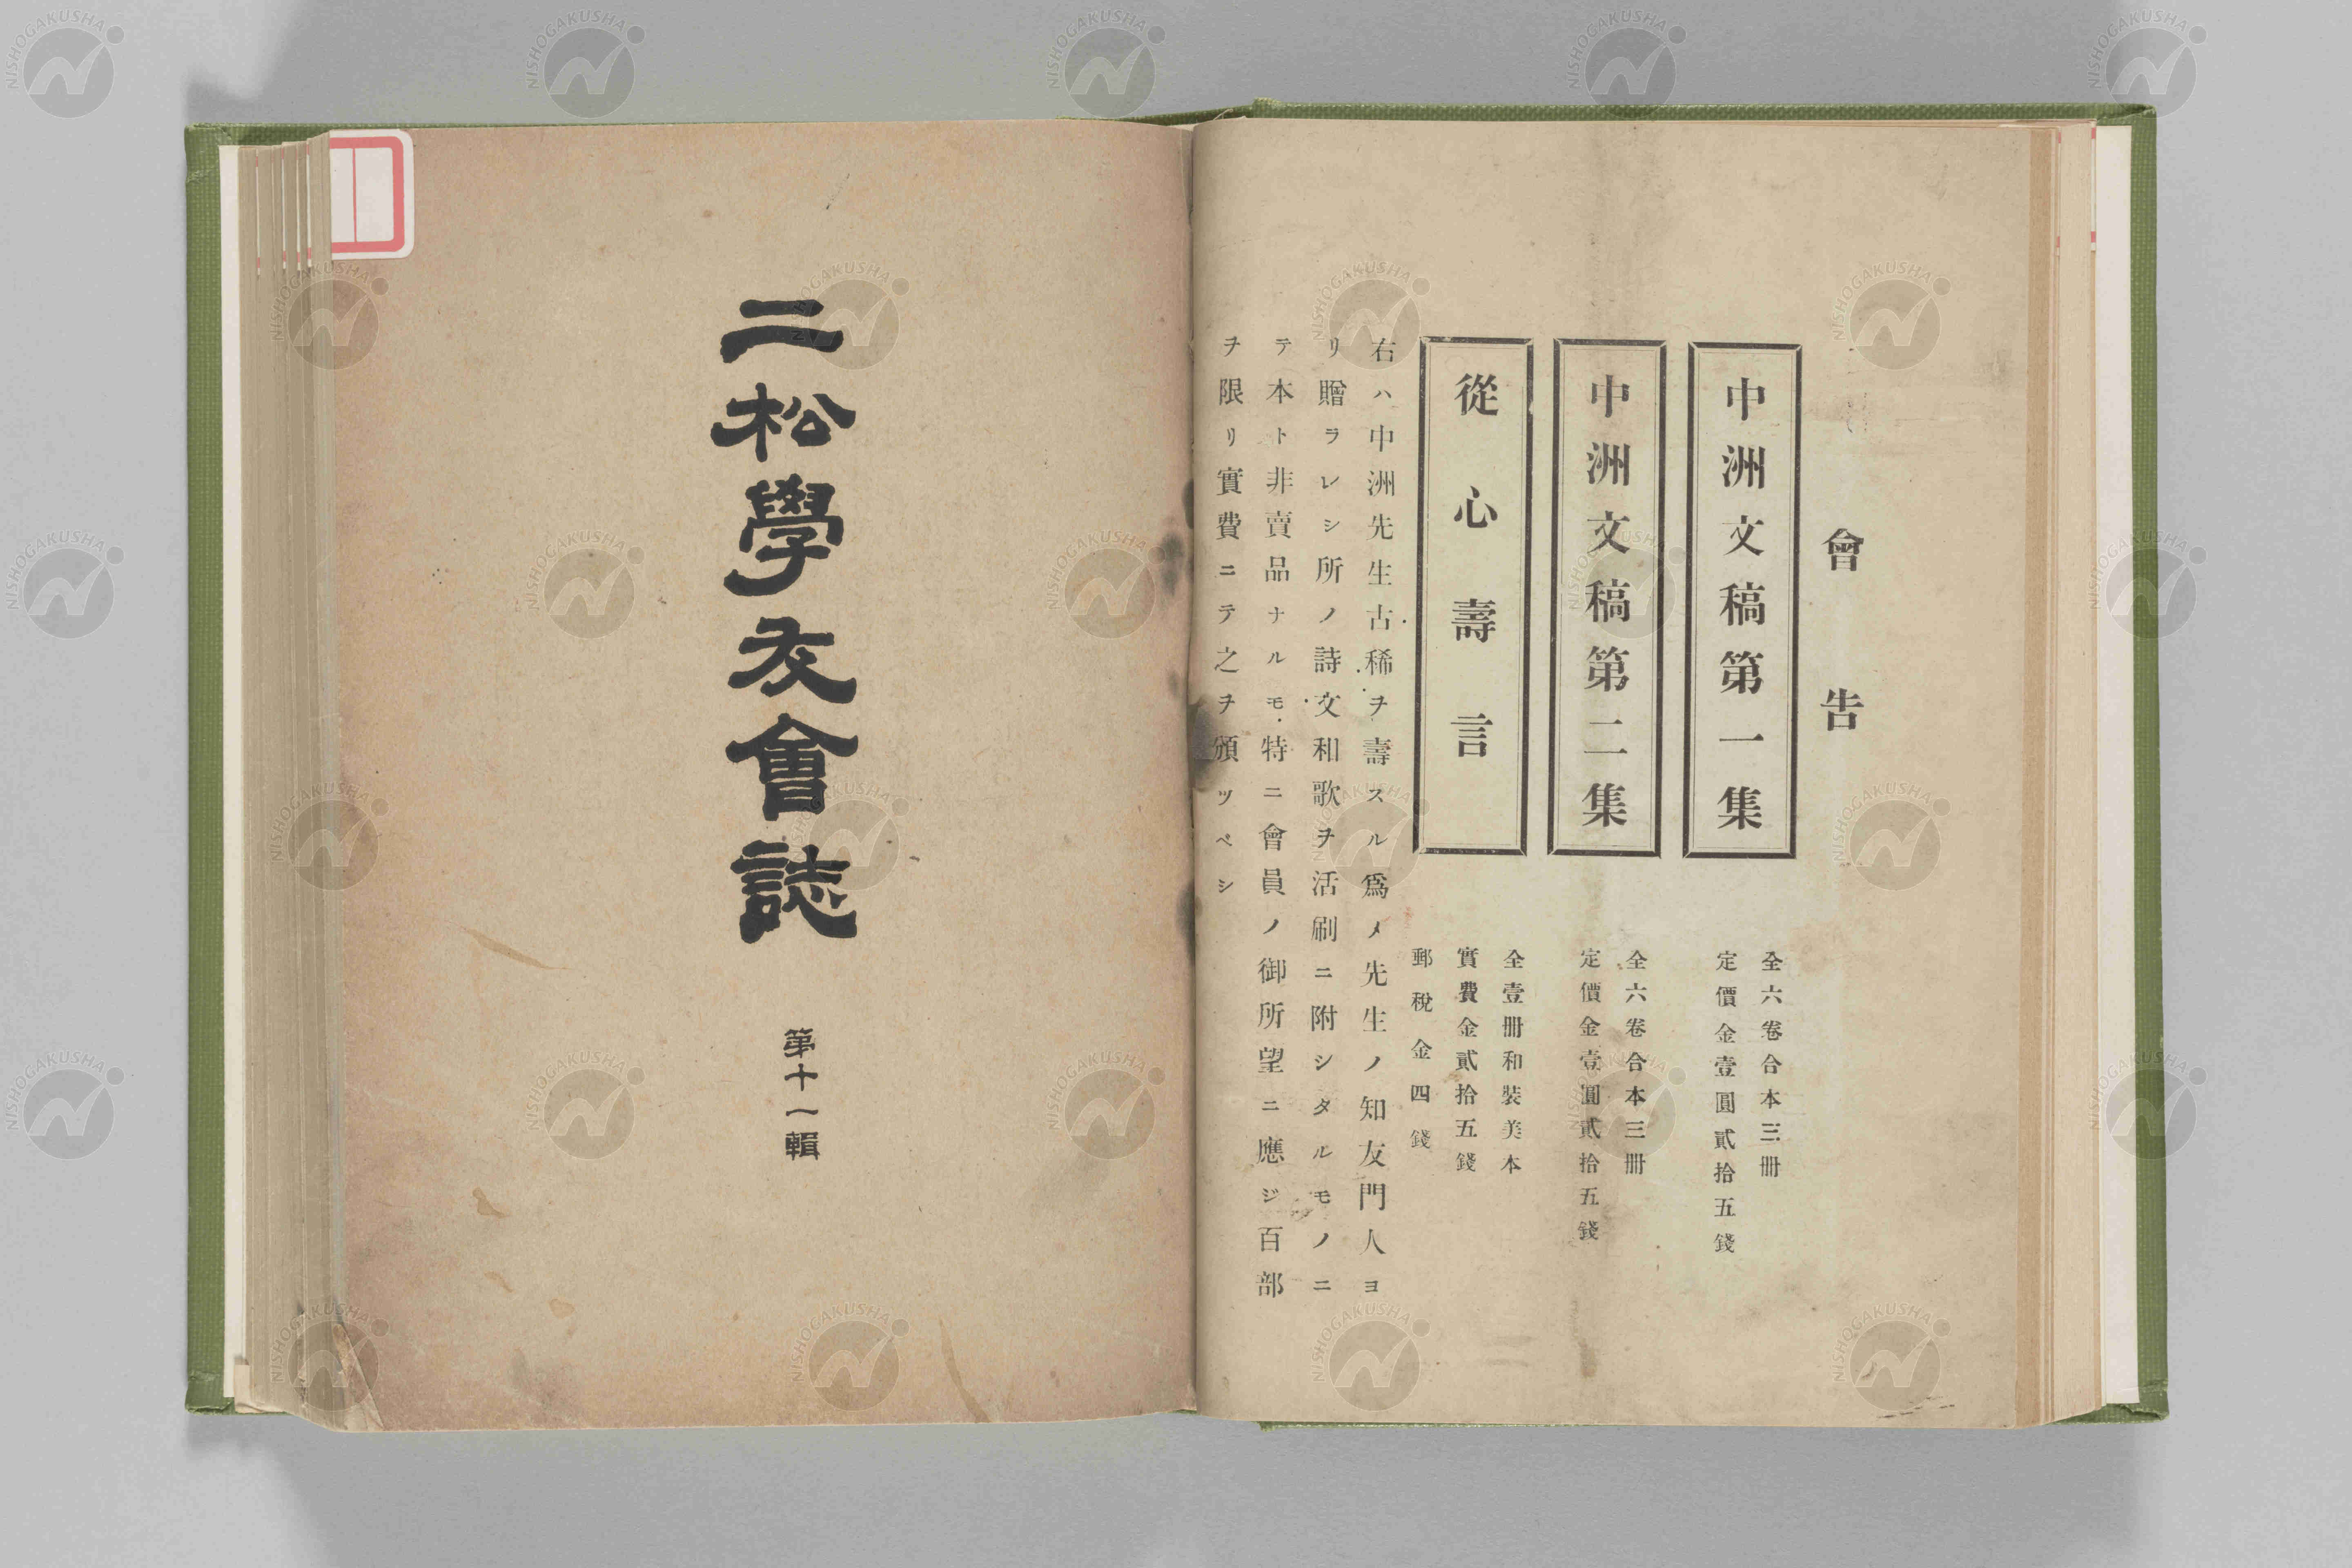 會告
中洲文稿第一集
全六卷合本三冊
定價金壹圓貳拾五錢
中洲文稿第二集
全六卷合本三冊
定價金壹圓貳拾五錢
從心壽言
全壹冊和裝美本
實費金貳拾五錢
郵稅金四錢
右ハ中洲先生古稀ヲ壽スル爲メ先生ノ知友門人ヨ
リ贈ラレシ所ノ詩文和歌ヲ活刷ニ附シタルモノニ
テ本ト非賣品ナルモ特ニ會員ノ御所望ニ應ジ百部
ヲ限リ實費ニテ之ヲ頒ツベシ
二松學友會誌
第十一輯
NISHOGAKUSHA